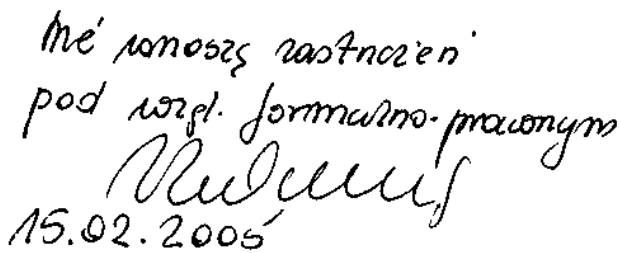 Nie wnoszę zastrzeżeń
pod wzgl. formalno-prawnym
15.02.2005